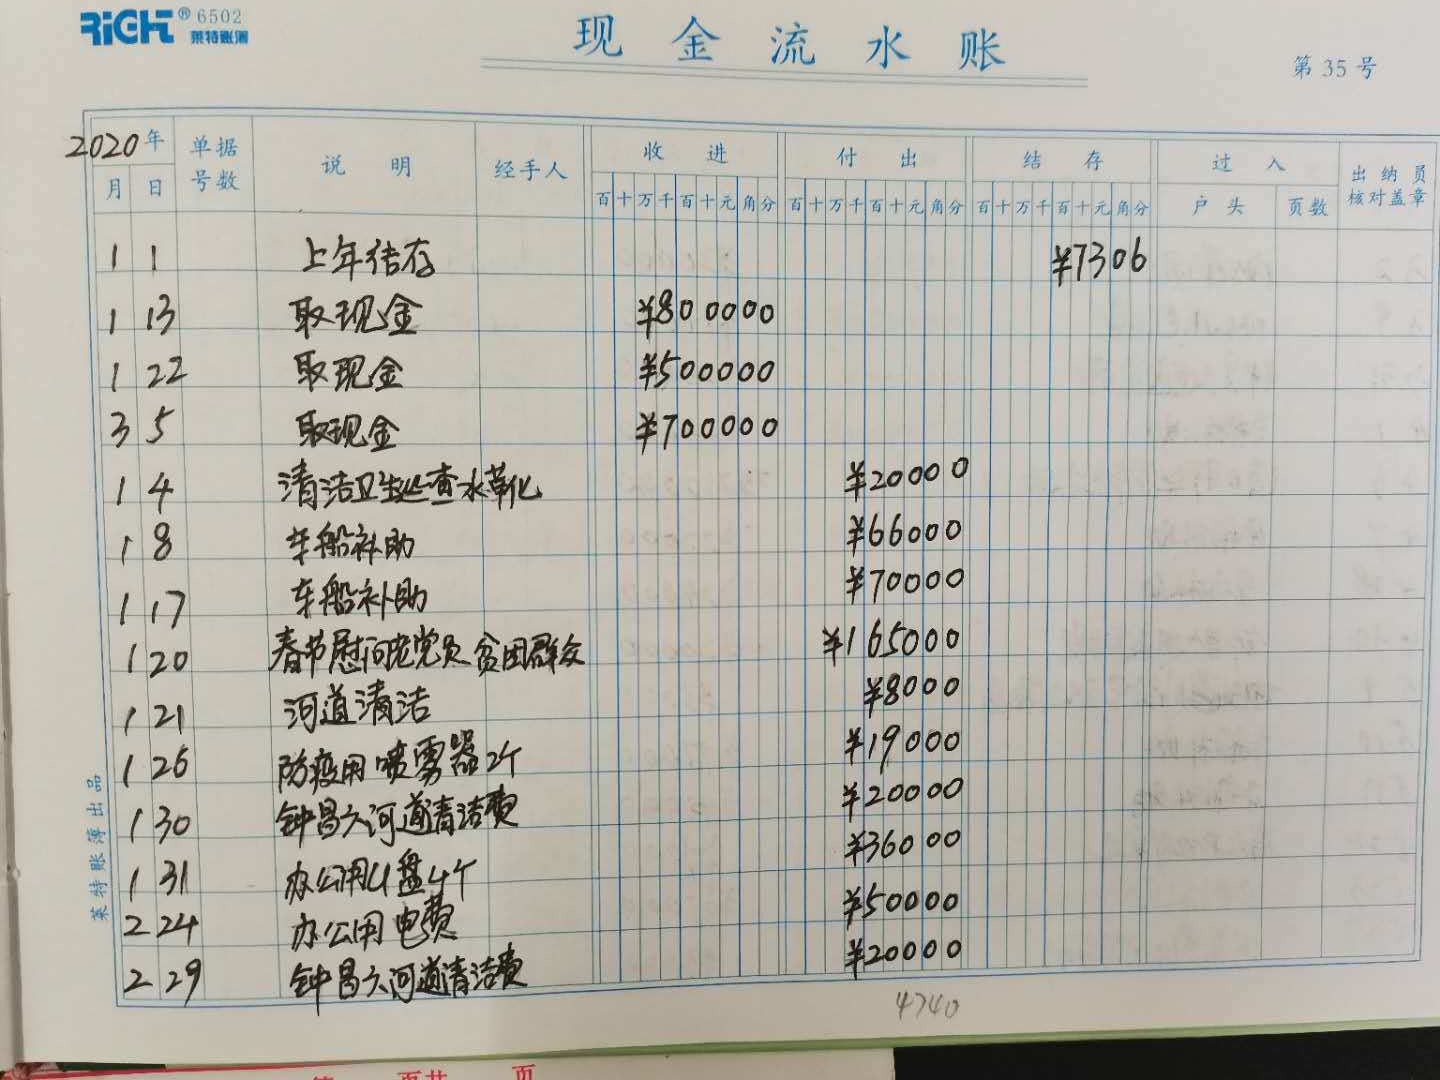 RiGHT® 6502
莱特账簿
现金流水账
第 35 号
2020年 单据号数 说明 经手人 收进 付出 结存 过入 出纳员核对盖章
月 日 百十万千百十元角分 百十万千百十元角分 百十万千百十元角分 户头 页数
1 1 上年结存 ¥7306
1 13 取现金 ¥800000
1 22 取现金 ¥500000
3 5 取现金 ¥700000
1 4 清洁卫生巡查水草化 ¥20000
1 8 车船补助 ¥66000
1 17 车船补助 ¥70000
1 20 春节慰问老党员 贫困群众 ¥165000
1 21 河道清洁 ¥8000
1 26 防疫用喷雾器2个 ¥19000
1 30 钟昌六河道清洁费 ¥20000
1 31 办公用U盘4个 ¥36000
2 24 办公用电费 ¥50000
2 29 钟昌六河道清洁费 ¥20000
4740
莱特账簿出品
页共 页